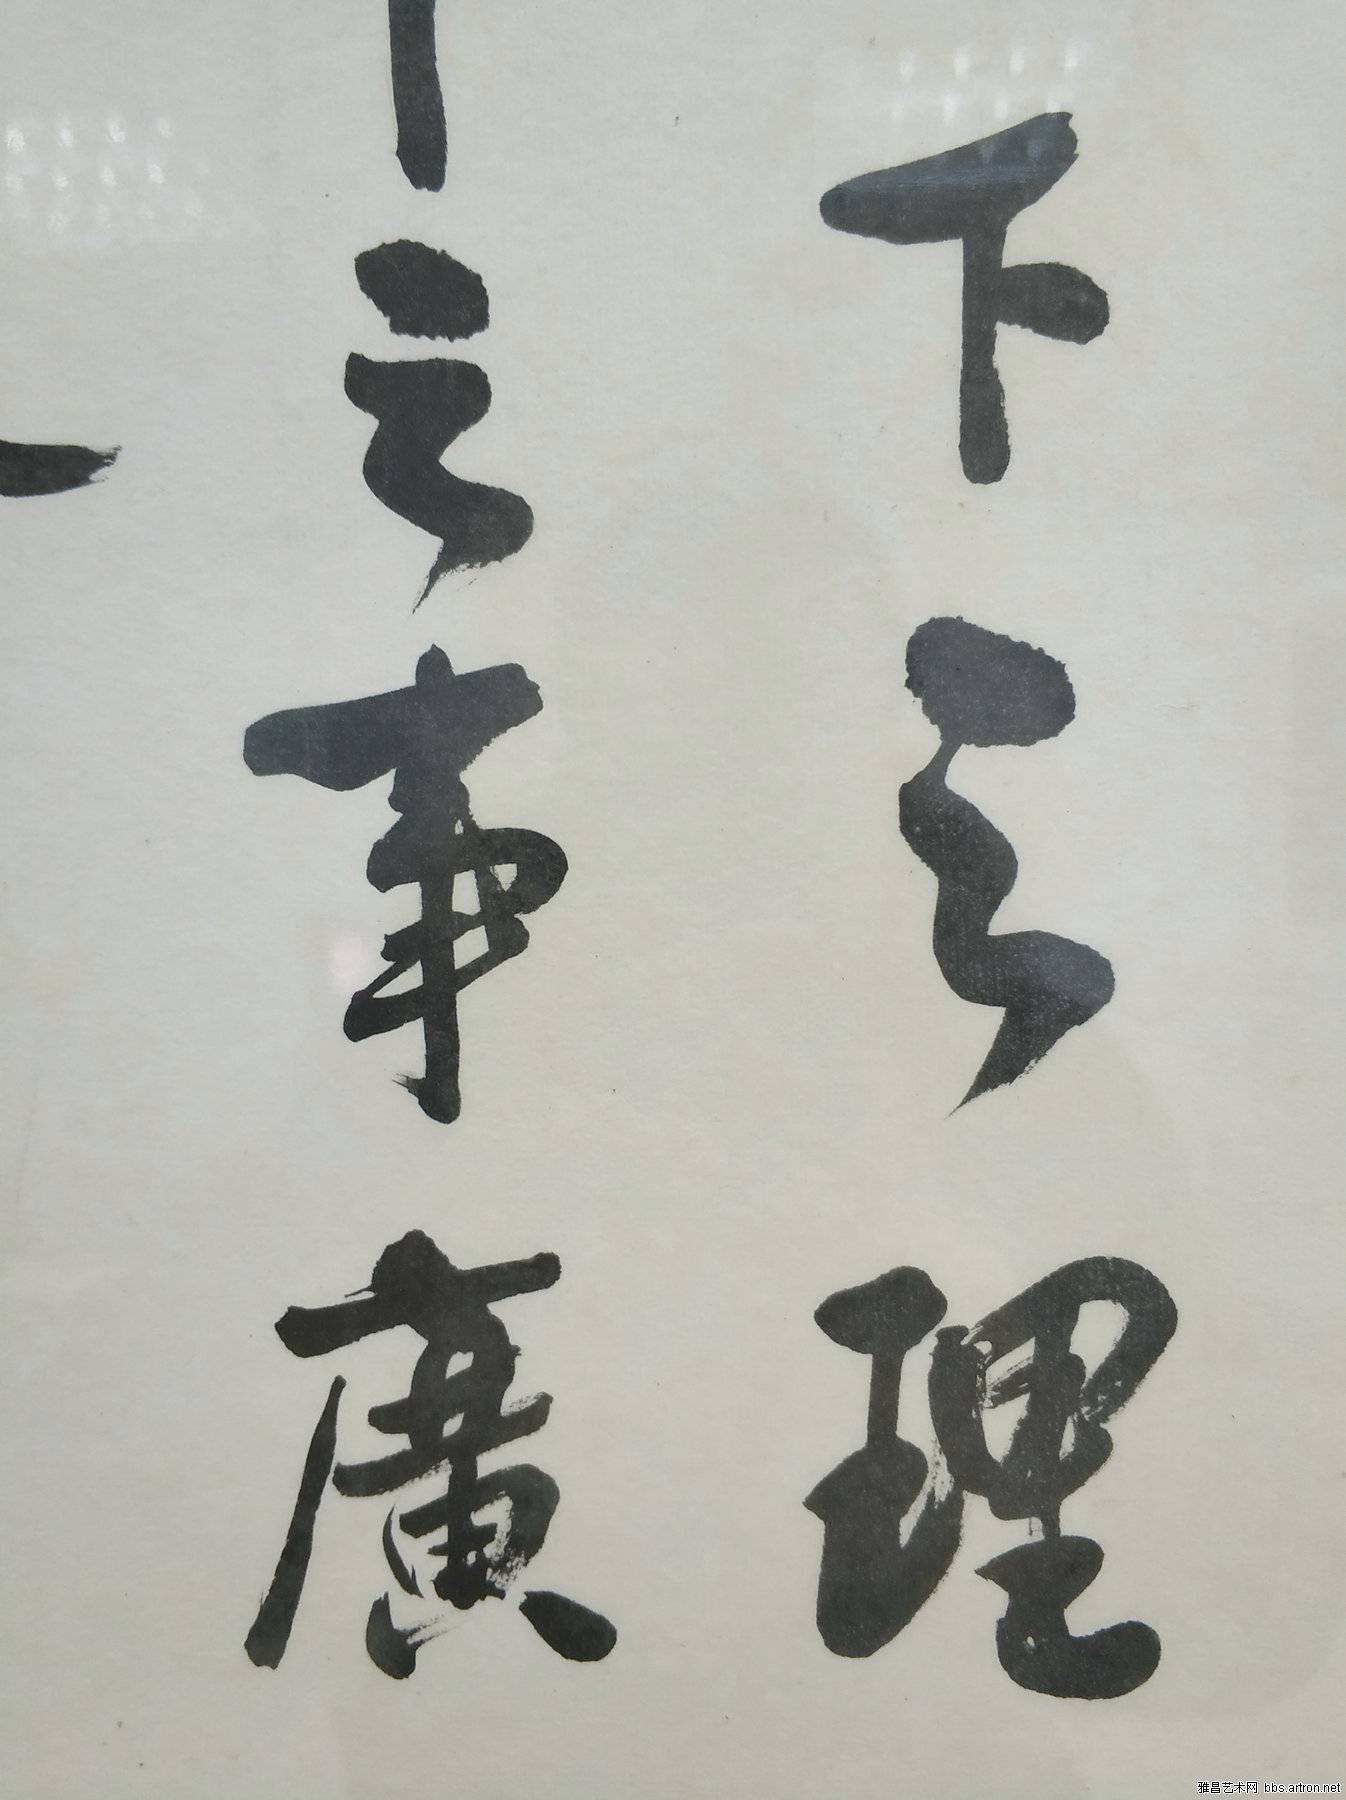 下之理
之事廣
雅昌艺术网 bbs.artron.net